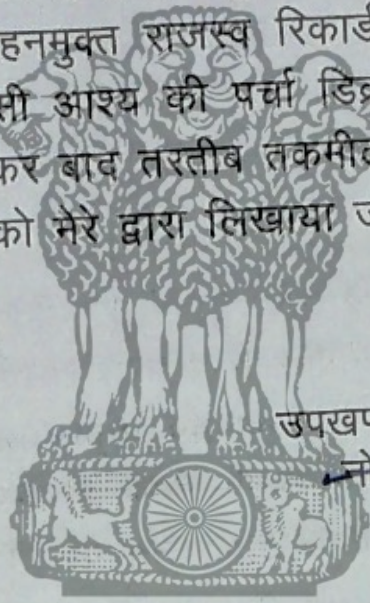 हनमुक्त राजस्व रिकार्ड
सी आश्य की पर्चा डिक्र
कर बाद तरतीब तकमील
को मेरे द्वारा लिखाया ज
उपखण
नो